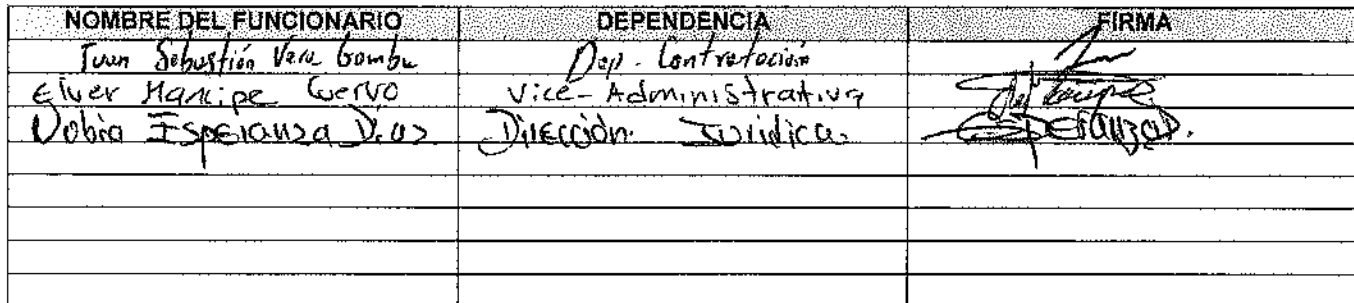 NOMBRE DEL FUNCIONARIO DEPENDENCIA FIRMA
Juan Sebastián Vera Gamba Dep. Contratación
Elver Mancipe Cuervo Vice-Administrativa
Esperanza Díaz Dirección Jurídica EsperanzaD.